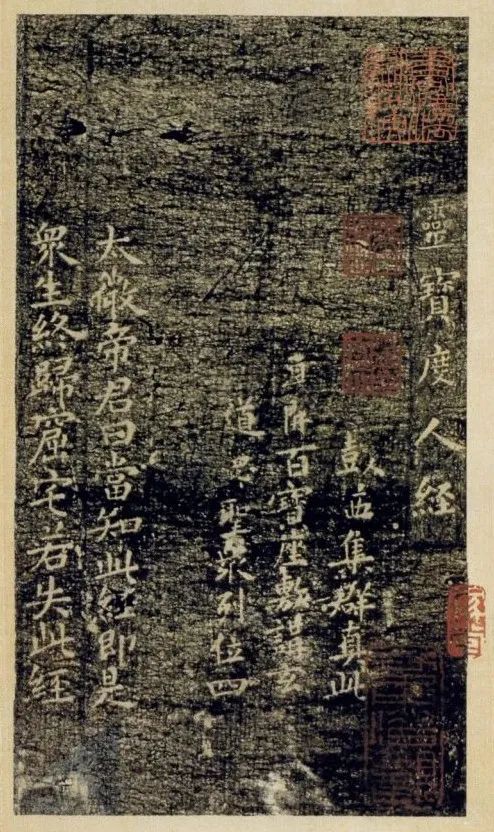 靈寶度人經
集群真此
百寶座敷講玄
道 聖衆列位四
太微帝君曰當知此經即是
衆生終歸窟宅若失此經